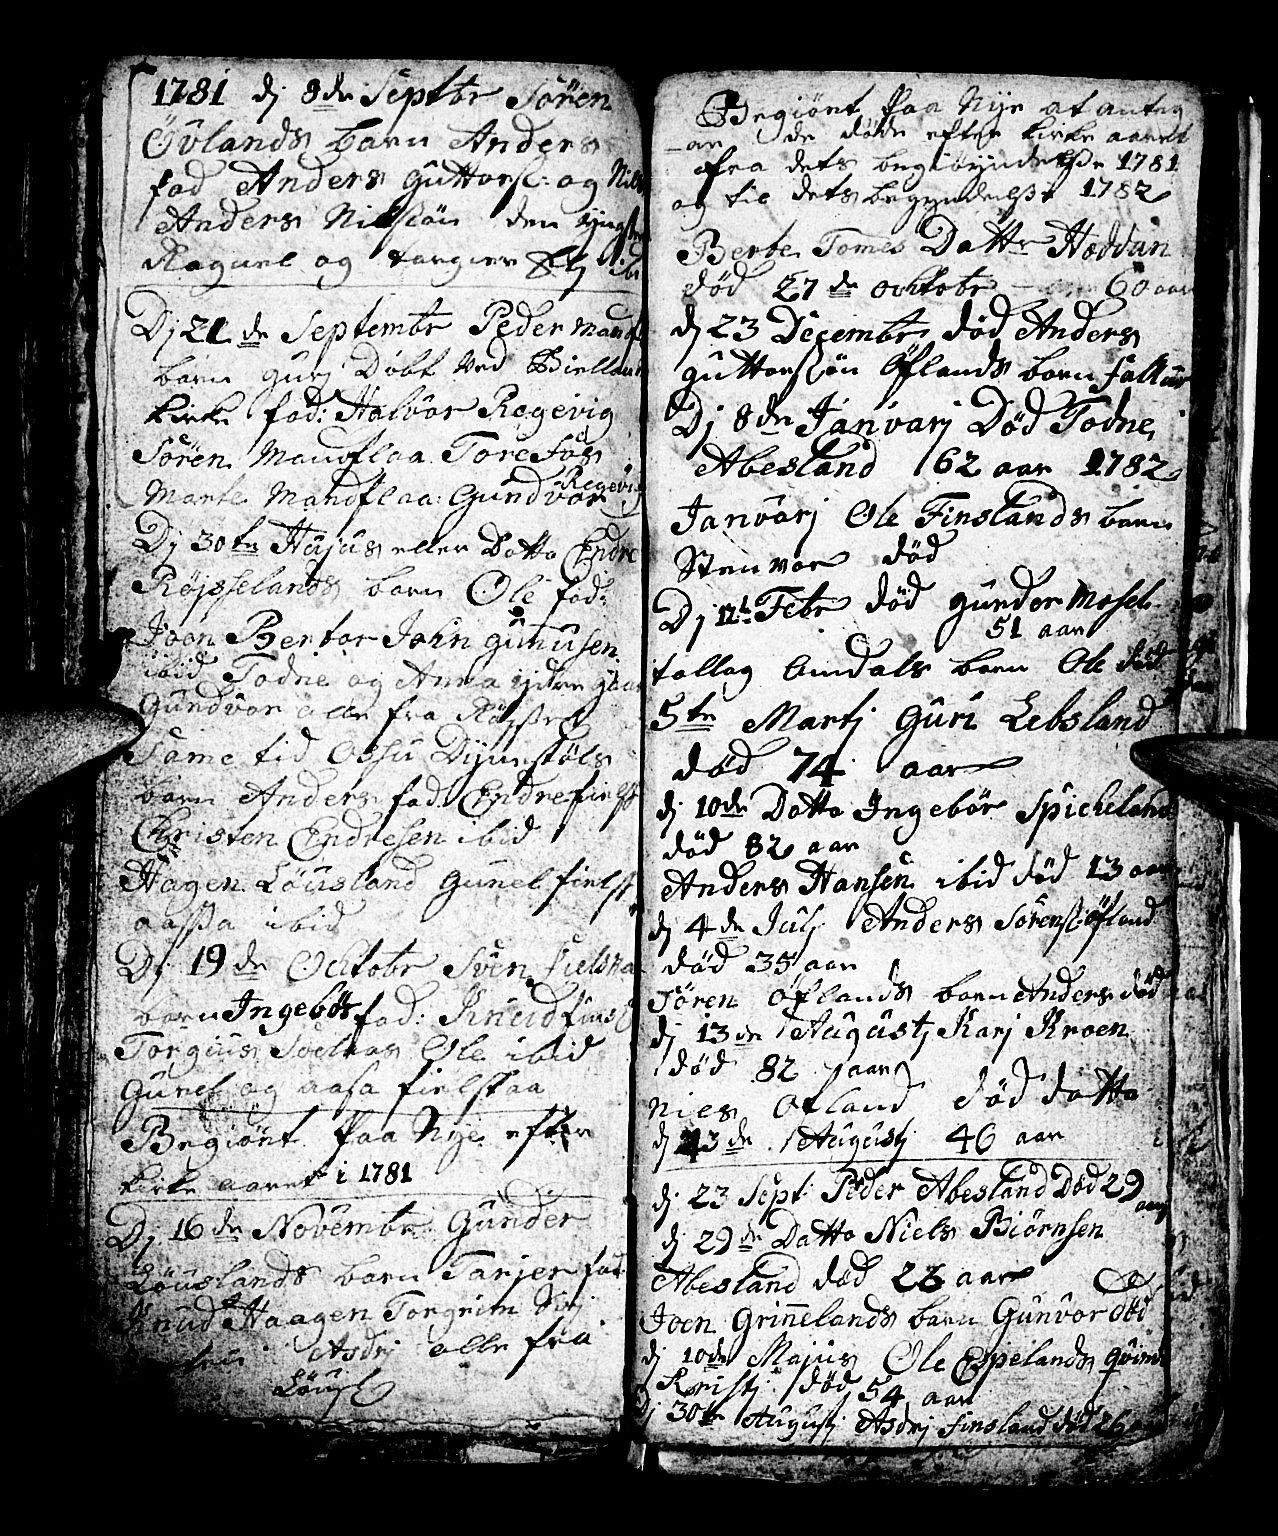 1781 dj 8de Septbr Sören
Övlands barn Anders
fad Anders Guttors: og Niels
Anders Nielsön den yngste
Raguel og Targier ibid
Dj 21de Septembr Peder Mandfl
barn gurj Döbt ved Bielland
kirke fad: Halvor Røgevig
Sören Mandflaa Tore Fos
Marte Mandflaa: Gundvor Røgevig
Dj 30te Hujus eller Datto Endre
Röjsselands barn Ole fad:
Joen Bertor John gunusen
ibid Todne og Anna ydre gaar
Gundvor alle fra Röjssel
Same tid Ossu Dynestöls
barn Anders fad: Endre fiels
Christen Endresen ibid
Hagen Löusland Gunel fielss
aassa ibid
Dj 19de Ochtobr Sven fielska
barn Ingebör fad: Knud fins
Torgius Soelaas Ole ibid
Gunel og aasa fielskaa
Begiönt paa Nye efter
kirke aaret i 1781
Dj 16de Novembr Gunder
Löuslands barn Tarjer fad
Knud Haagen Torgrim Sirj
Asdrj alle fra
Lousl
Begiönt paa Nye at anteg
ne de døde efter kirke aaret
fra dets begiöyndelsse 1781
og til dets begyndelsse 1782
Berte Tomes Dattr Hoddun
død 27de ochtobr 60 aar
dj 23 Decembr död Anders
guttorsön Öflands barn
Dj 8de Janvarj Död Todne
Abesland 62 aar 1782
Janvarj Ole Finslands barn
Stenvor död
Dj 12t Febr död gunder Mosel
51 aar
tallag Amdals barn Ole död
5te Martj Guri Lebsland
död 74 aar
dj 10de Datto Ingebör Spickeland
död 82 aar
Anders Hansen ibid död 13 aar
dj 4de Julj Anders Sörens: öfland
död 35 aar
Sören Öflands barn Anders död
dj 13de Augustj Karj Kroen
död 82 aar
Nies Öfland död datto
dj 23de Augustj 46 aar
dj 23 Sept: Peder Abesland Död 29 aar
dj 29de Datto Niels Biörnsen
Abesland död 26 aar
Joen Grinnelands barn Gunvor död
dj 10de Majus Ole Espelands qvinde
Kristj död 54 aar
Dj 30te Augustj Asdrj Finsland död 26